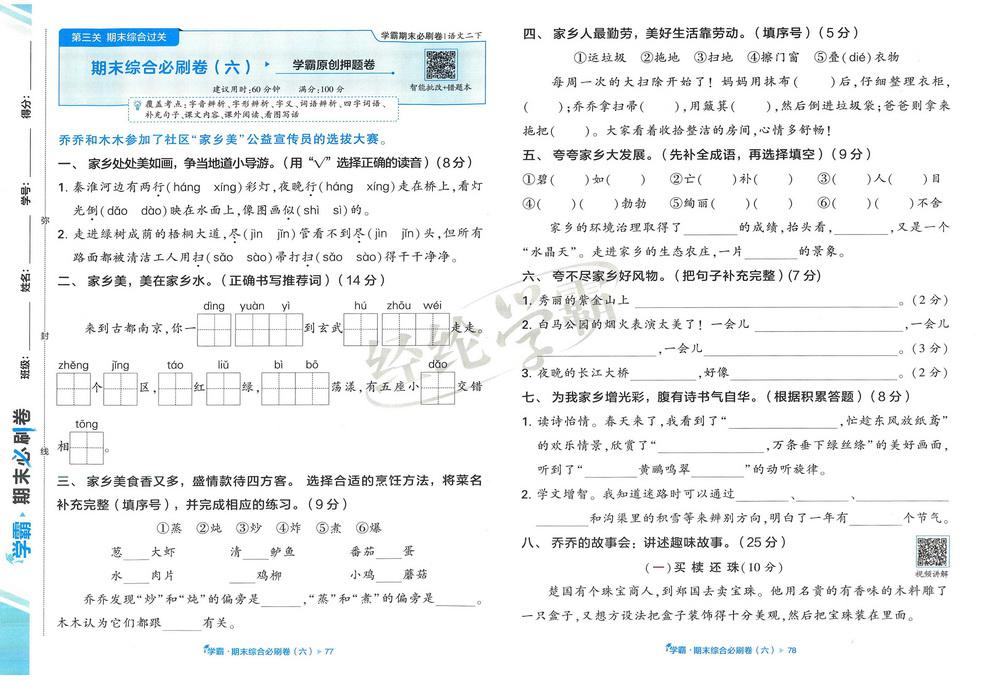 第三关 期末综合过关
学霸期末必刷卷|语文二下
期末综合必刷卷(六) 学霸原创押题卷
建议用时:60分钟 满分:100分
智能批改+错题本
覆盖考点:字音辨析、字形辨析、字义、词语辨析、四字词语、
补充句子、课文内容、课外阅读、看图写话
乔乔和木木参加了社区“家乡美”公益宣传员的选拔大赛。
一、 家乡处处美如画,争当地道小导游。(用“√”选择正确的读音)(8分)
1. 秦淮河边有两行(háng xíng)彩灯,夜晚行(háng xíng)走在桥上,看灯
光倒(dǎo dào)映在水面上,像图画似(shì sì)的。
2. 走进绿树成荫的梧桐大道,尽(jìn jǐn)管看不到尽(jìn jǐn)头,但所有
路面都被清洁工人用扫(sǎo sào)帚打扫(sǎo sào)得干干净净。
二、 家乡美,美在家乡水。(正确书写推荐词)(14分)
dìng yuàn yì hú zhōu wéi
来到古都南京,你一 到玄武 走走。
zhěng jǐng táo liǔ bì bō dǎo
个 区, 红 绿, 荡漾,有五座小 交错
tōng
相 。
三、 家乡美食香又多,盛情款待四方客。 选择合适的烹饪方法,将菜名
补充完整(填序号),并完成相应的练习。(9分)
①蒸 ②炖 ③炒 ④炸 ⑤煮 ⑥爆
葱____大虾 清____鲈鱼 番茄____蛋
水____肉片 ____鸡柳 小鸡____蘑菇
乔乔发现“炒”和“炖”的偏旁是____,“蒸”和“煮”的偏旁是____。
木木认为它们都跟____有关。
学霸·期末综合必刷卷(六) 77
四、 家乡人最勤劳,美好生活靠劳动。(填序号)(5分)
①运垃圾 ②拖地 ③扫地 ④擦门窗 ⑤叠(dié)衣物
每周一次的大扫除开始了!妈妈用抹布( )后,仔细整理衣柜,
( );乔乔拿扫帚( ),用簸箕( ),然后倒进垃圾袋;爸爸则拿来
拖把( )。大家看着收拾整洁的房间,心情多舒畅!
五、 夸夸家乡大发展。(先补全成语,再选择填空)(9分)
①碧( )如( ) ②亡( )补( ) ③( )人( )目
④( )( )勃勃 ⑤绚丽( )( ) ⑥( )( )不舍
家乡的环境治理取得了________的成绩,抬头看,________,又是一个
“水晶天”。走进家乡的生态农庄,一片________的景象。
六、 夸不尽家乡好风物。(把句子补充完整)(7分)
1. 秀丽的紫金山上________。(2分)
2. 白马公园的烟火表演太美了!一会儿________,一会儿
________,一会儿________。(3分)
3. 夜晚的长江大桥________,好像________。(2分)
七、 为我家乡增光彩,腹有诗书气自华。(根据积累答题)(8分)
1. 读诗怡情。春天来了,我看到了“________,忙趁东风放纸鸢”
的欢乐情景,欣赏了“________,万条垂下绿丝绦”的美好画面,
听到了“________黄鹂鸣翠________”的动听旋律。
2. 学文增智。我知道迷路时可以通过________、________、________
________和沟渠里的积雪等来辨别方向,明白了一年有________个节气。
八、 乔乔的故事会:讲述趣味故事。(25分)
视频讲解
(一)买椟还珠(10分)
楚国有个珠宝商人,到郑国去卖宝珠。他用名贵的有香味的木料雕了
一只盒子,又想方设法把盒子装饰得十分美观,然后把宝珠装在里面。
学霸·期末综合必刷卷(六) 78
得分:
学号:
姓名:
班级:
弥
封
线
学霸 期末必刷卷
经纶学霸